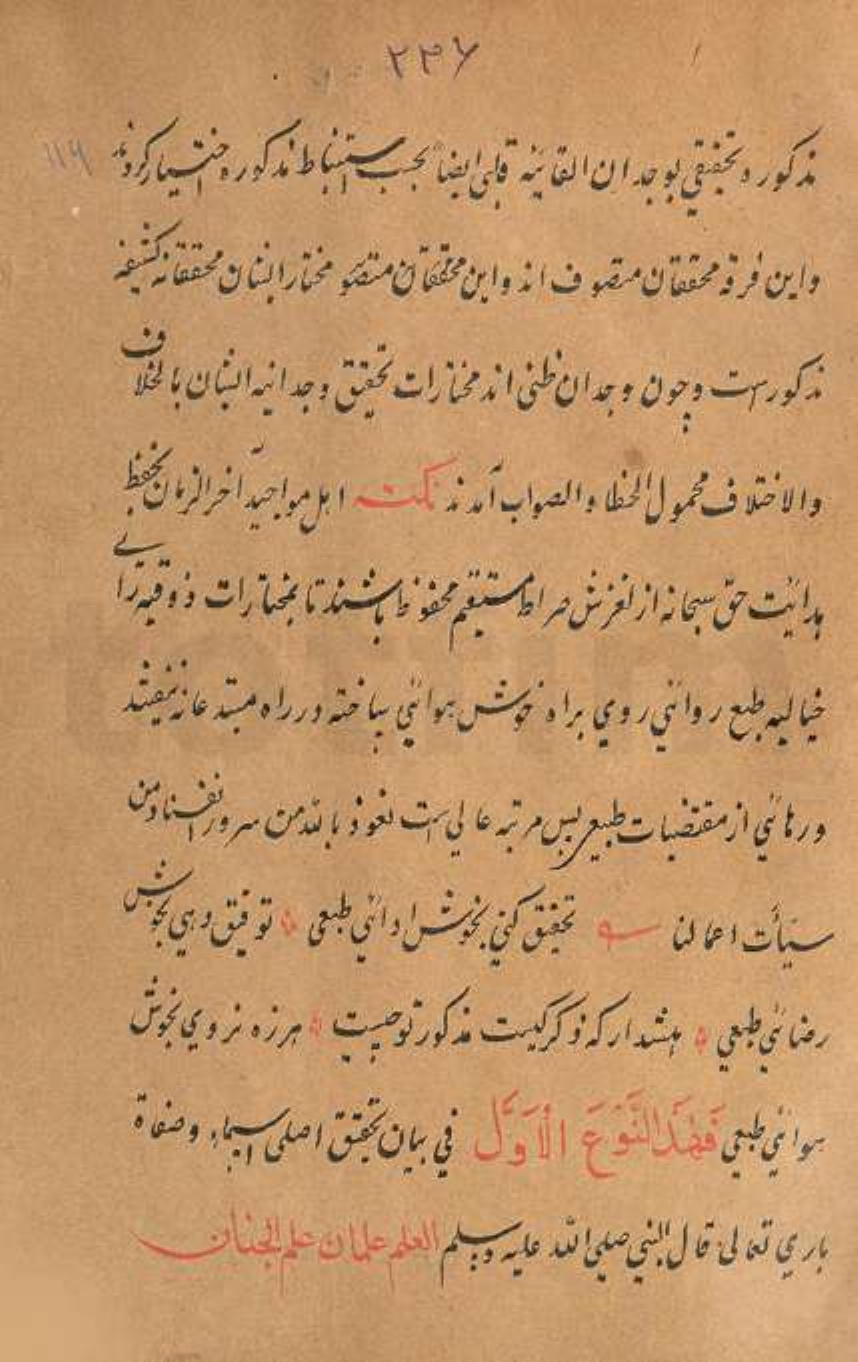 ۲۳۶
۱۱۶
مذکوره تحقیقی بوجدان القائیه قلبی ایضاً بحسب استنباط مذکوره اختیار کردند
واین فرقه محققان متصوف اند واین محققان متصوف مختار ایشان محققانه کشفیه
مذکورست وچون وجدان ظنی اند مختارات تحقیق وجدانیه ایشان بالخلاف
والاختلاف محمول الخطا والصواب آمدند نکته اهل مواجید آخر الزمان بحفظ
هدائیت حق سبحانه از لغزش صراط مستقیم محفوظ باشند تا بمختارات ذوقیه رائی
خیالیه طبع روائی روی براه خوش هوائی ساخته در راه مبتدعانه نیفتند
ورهائی از مقتضیات طبعی بس مرتبه عالی است نعوذ بالله من شرور انفسنا ومن
سیأت اعمالنا تحقیق کنی بخوش ادائی طبعی توفیق دهی بخوش
رضائی طبعی هشدار که ذکر کیست مذکور تو چیست هرزه نروی بخوش
هوائی طبعی فَهٰذَا النَّوْعَ الْاَوَّلَ فی بیان تحقیق اصلی اسماء وصفاة
باری تعالی قال النبی صلی الله علیه وسلم العلم علمان علم الجنان